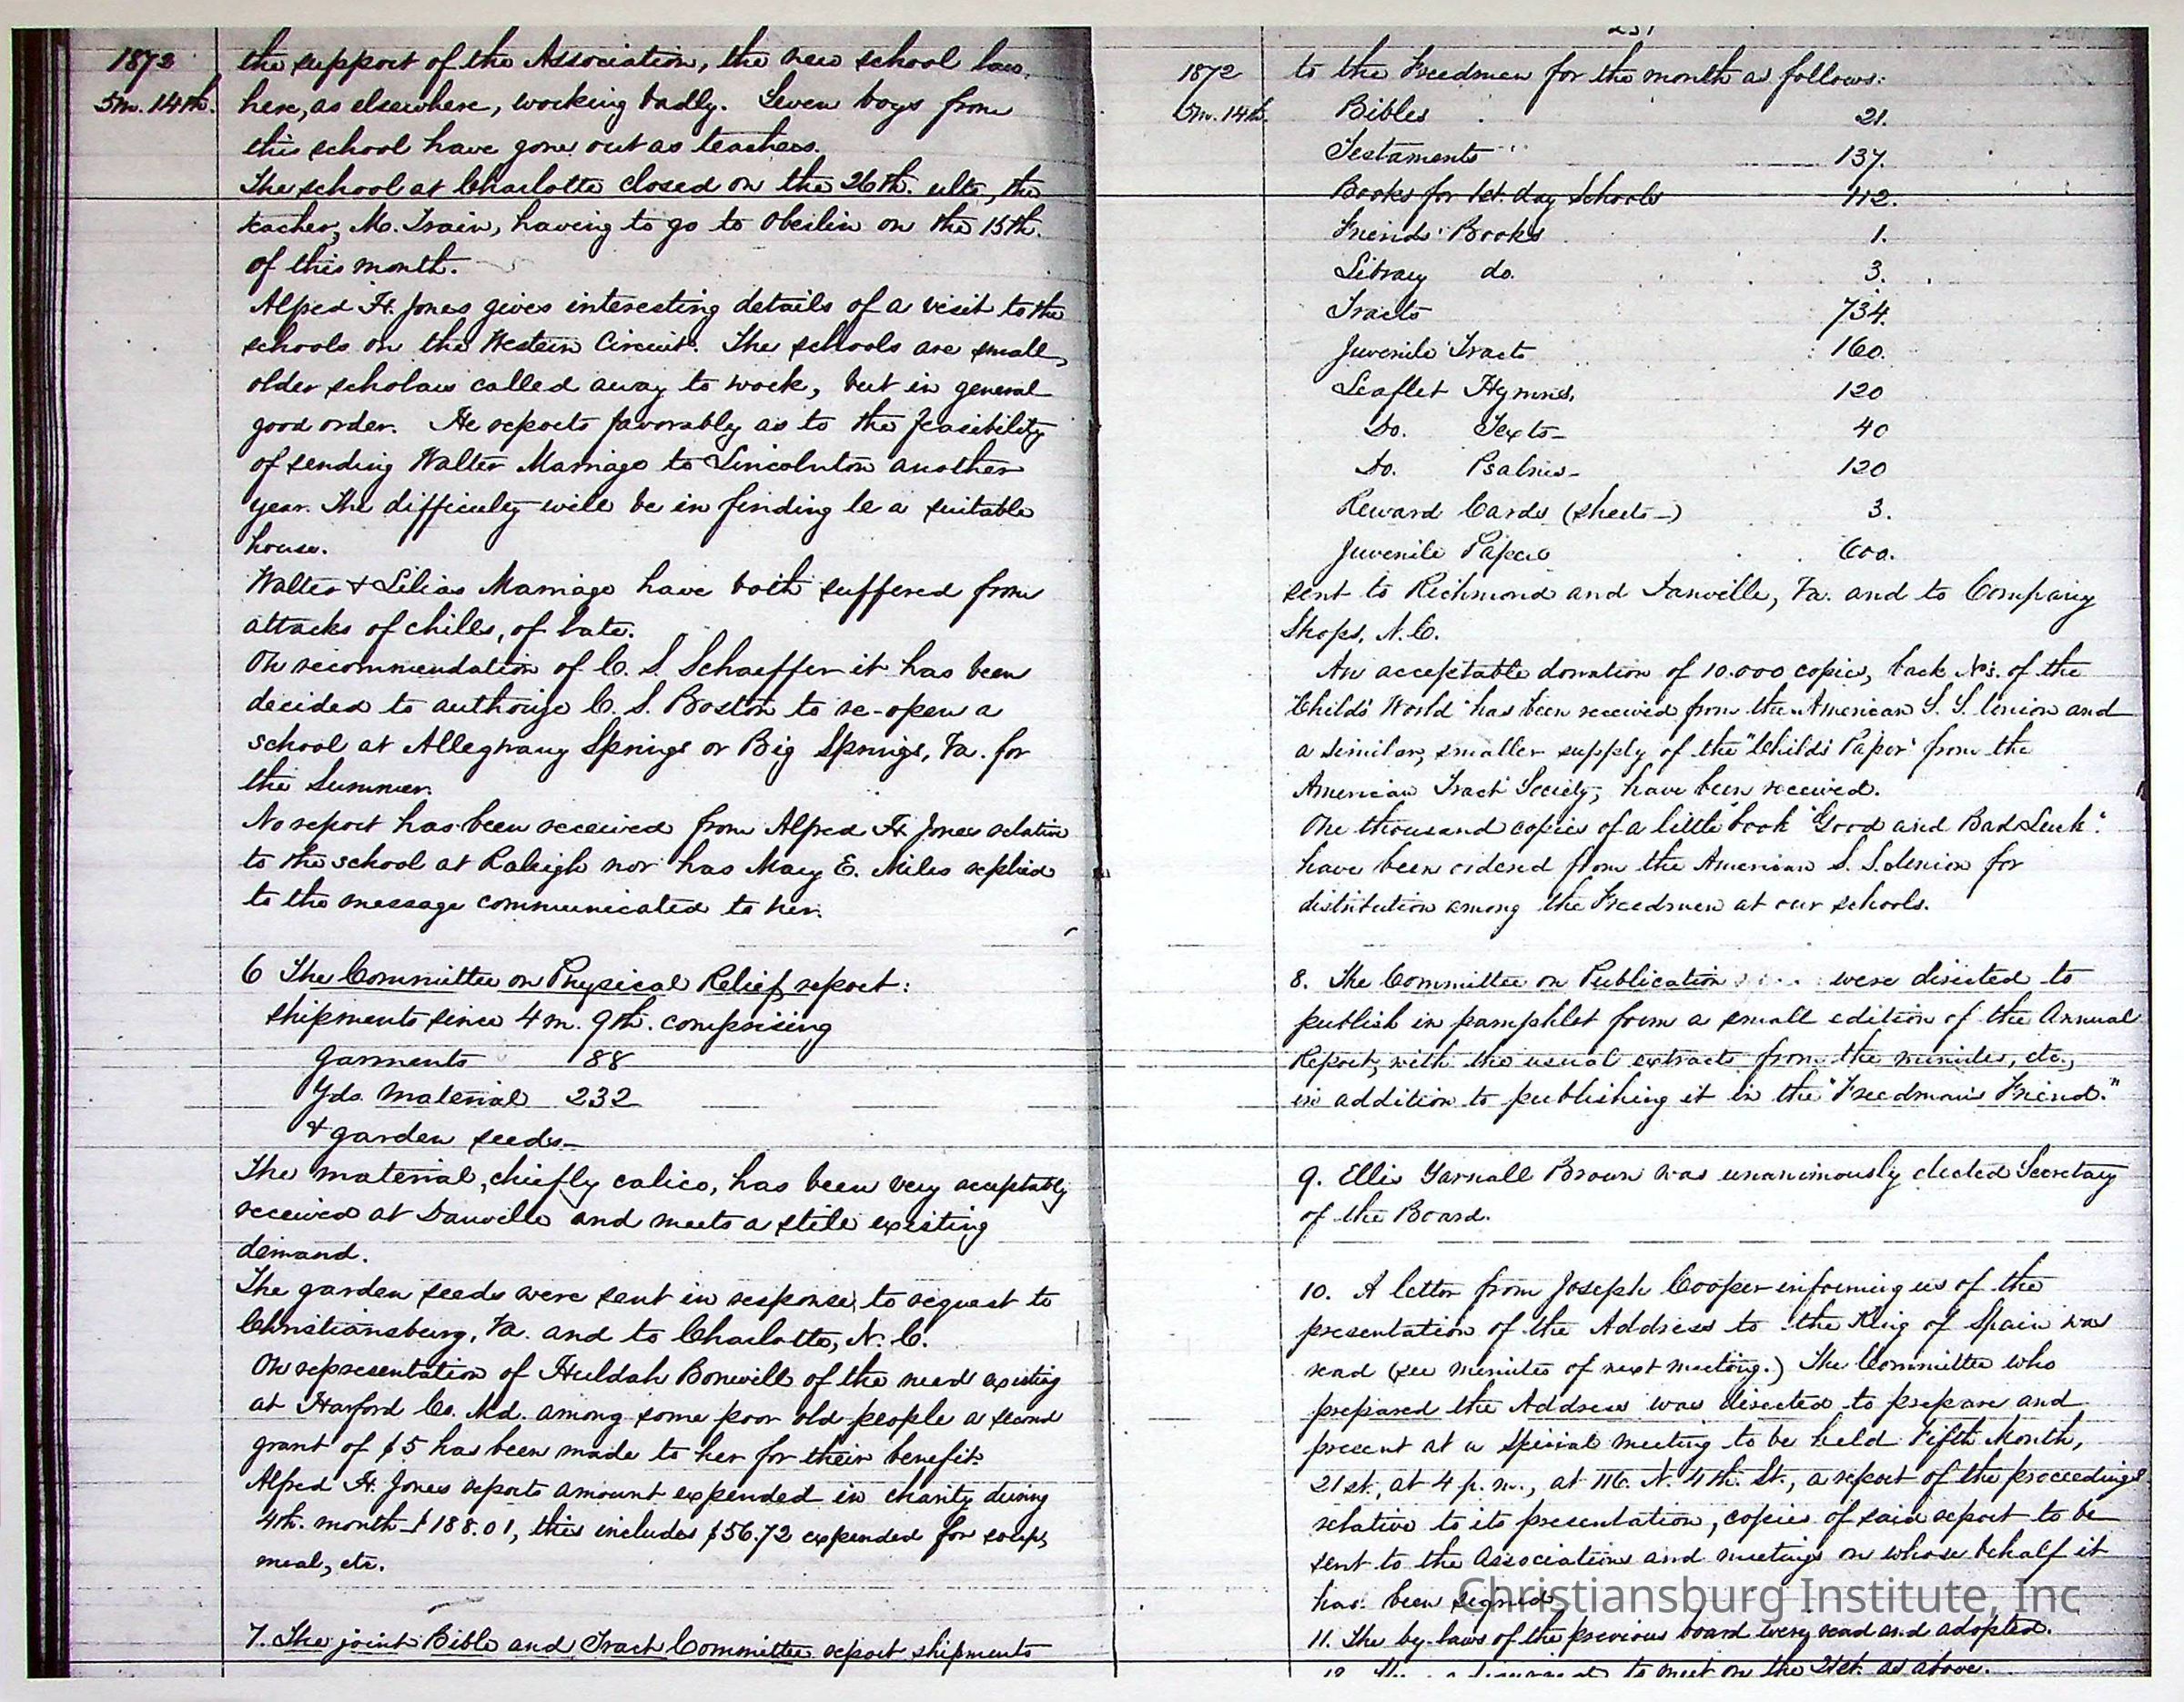 1872
5m. 14th.
the support of the Association, the new school law,
here, as elsewhere, working badly. Seven boys from
this school have gone out as teachers.
The school at Charlotte closed on the 26th. ulto, the
teacher, M. Train, having to go to Oberlin on the 15th.
of this month.
Alfred H. Jones gives interesting details of a visit to the
schools on the Western Circuit. The schools are small,
older scholars called away to work, but in general
good order. He reports favorably as to the feasibility
of sending Walter Marriage to Lincolnton another
year. The difficulty will be in finding a suitable
house.
Walter & Lilias Marriage have both suffered from
attacks of chills, of late.
On recommendation of C. S. Schaeffer it has been
decided to authorize C. S. Boston to re-open a
school at Alleghany Springs or Big Springs, Va. for
the Summer.
No report has been received from Alfred H. Jones relative
to the school at Raleigh nor has Mary E. Miles replied
to the message communicated to her.
6 The Committee on Physical Relief report:
shipments since 4m. 9th. comprising
garments 88
Yds. material 232
& garden seeds—
The material, chiefly calico, has been very acceptably
received at Danville and meets a still existing
demand.
The garden seeds were sent in response to request to
Christiansburg, Va. and to Charlotte, N. C.
On representation of Huldah Bonwill of the need existing
at Harford Co. Md. among some poor old people a second
grant of $5 has been made to her for their benefit.
Alfred H. Jones reports amount expended in charity during
4th. month $188.01, this includes $56.72 expended for soup,
meal, etc.
7. The joint Bible and Tract Committee report shipments
231
1872
5m. 14th.
to the Freedmen for the month as follows:
Bibles 21.
Testaments 137.
Books for 1st. day Schools 112.
Friends' Books 1.
Library do. 3.
Tracts 734.
Juvenile Tracts 160.
Leaflet Hymns, 120
Do. Texts— 40
Do. Psalms— 120
Reward Cards (sheets—) 3.
Juvenile Papers 600.
sent to Richmond and Danville, Va. and to Company
Shops, N. C.
An acceptable donation of 10.000 copies, back Nos. of the
"Child's World" has been received from the American S. S. Union and
a similar, smaller supply of the "Child's Paper" from the
American Tract Society, have been received.
One thousand copies of a little book "Good and Bad Luck"
have been ordered from the American S. S. Union for
distribution among the Freedmen at our schools.
8. The Committee on Publication were directed to
publish in pamphlet form a small edition of the Annual
Report, with the usual extracts from the minutes, etc.,
in addition to publishing it in the "Freedman's Friend."
9. Ellis Yarnall Brown was unanimously elected Secretary
of the Board.
10. A letter from Joseph Cooper informing us of the
presentation of the Address to the King of Spain was
read (see minutes of next meeting.) The Committee who
prepared the Address was directed to prepare and
present at a special meeting to be held Fifth Month,
21st., at 4 p. m., at 116. N. 4th. St., a report of the proceedings
relative to its presentation, copies of said report to be
sent to the Associations and meetings on whose behalf it
has been signed.
Christiansburg Institute, Inc
11. The by-laws of the previous board were read and adopted.
to meet on the 21st. as above.